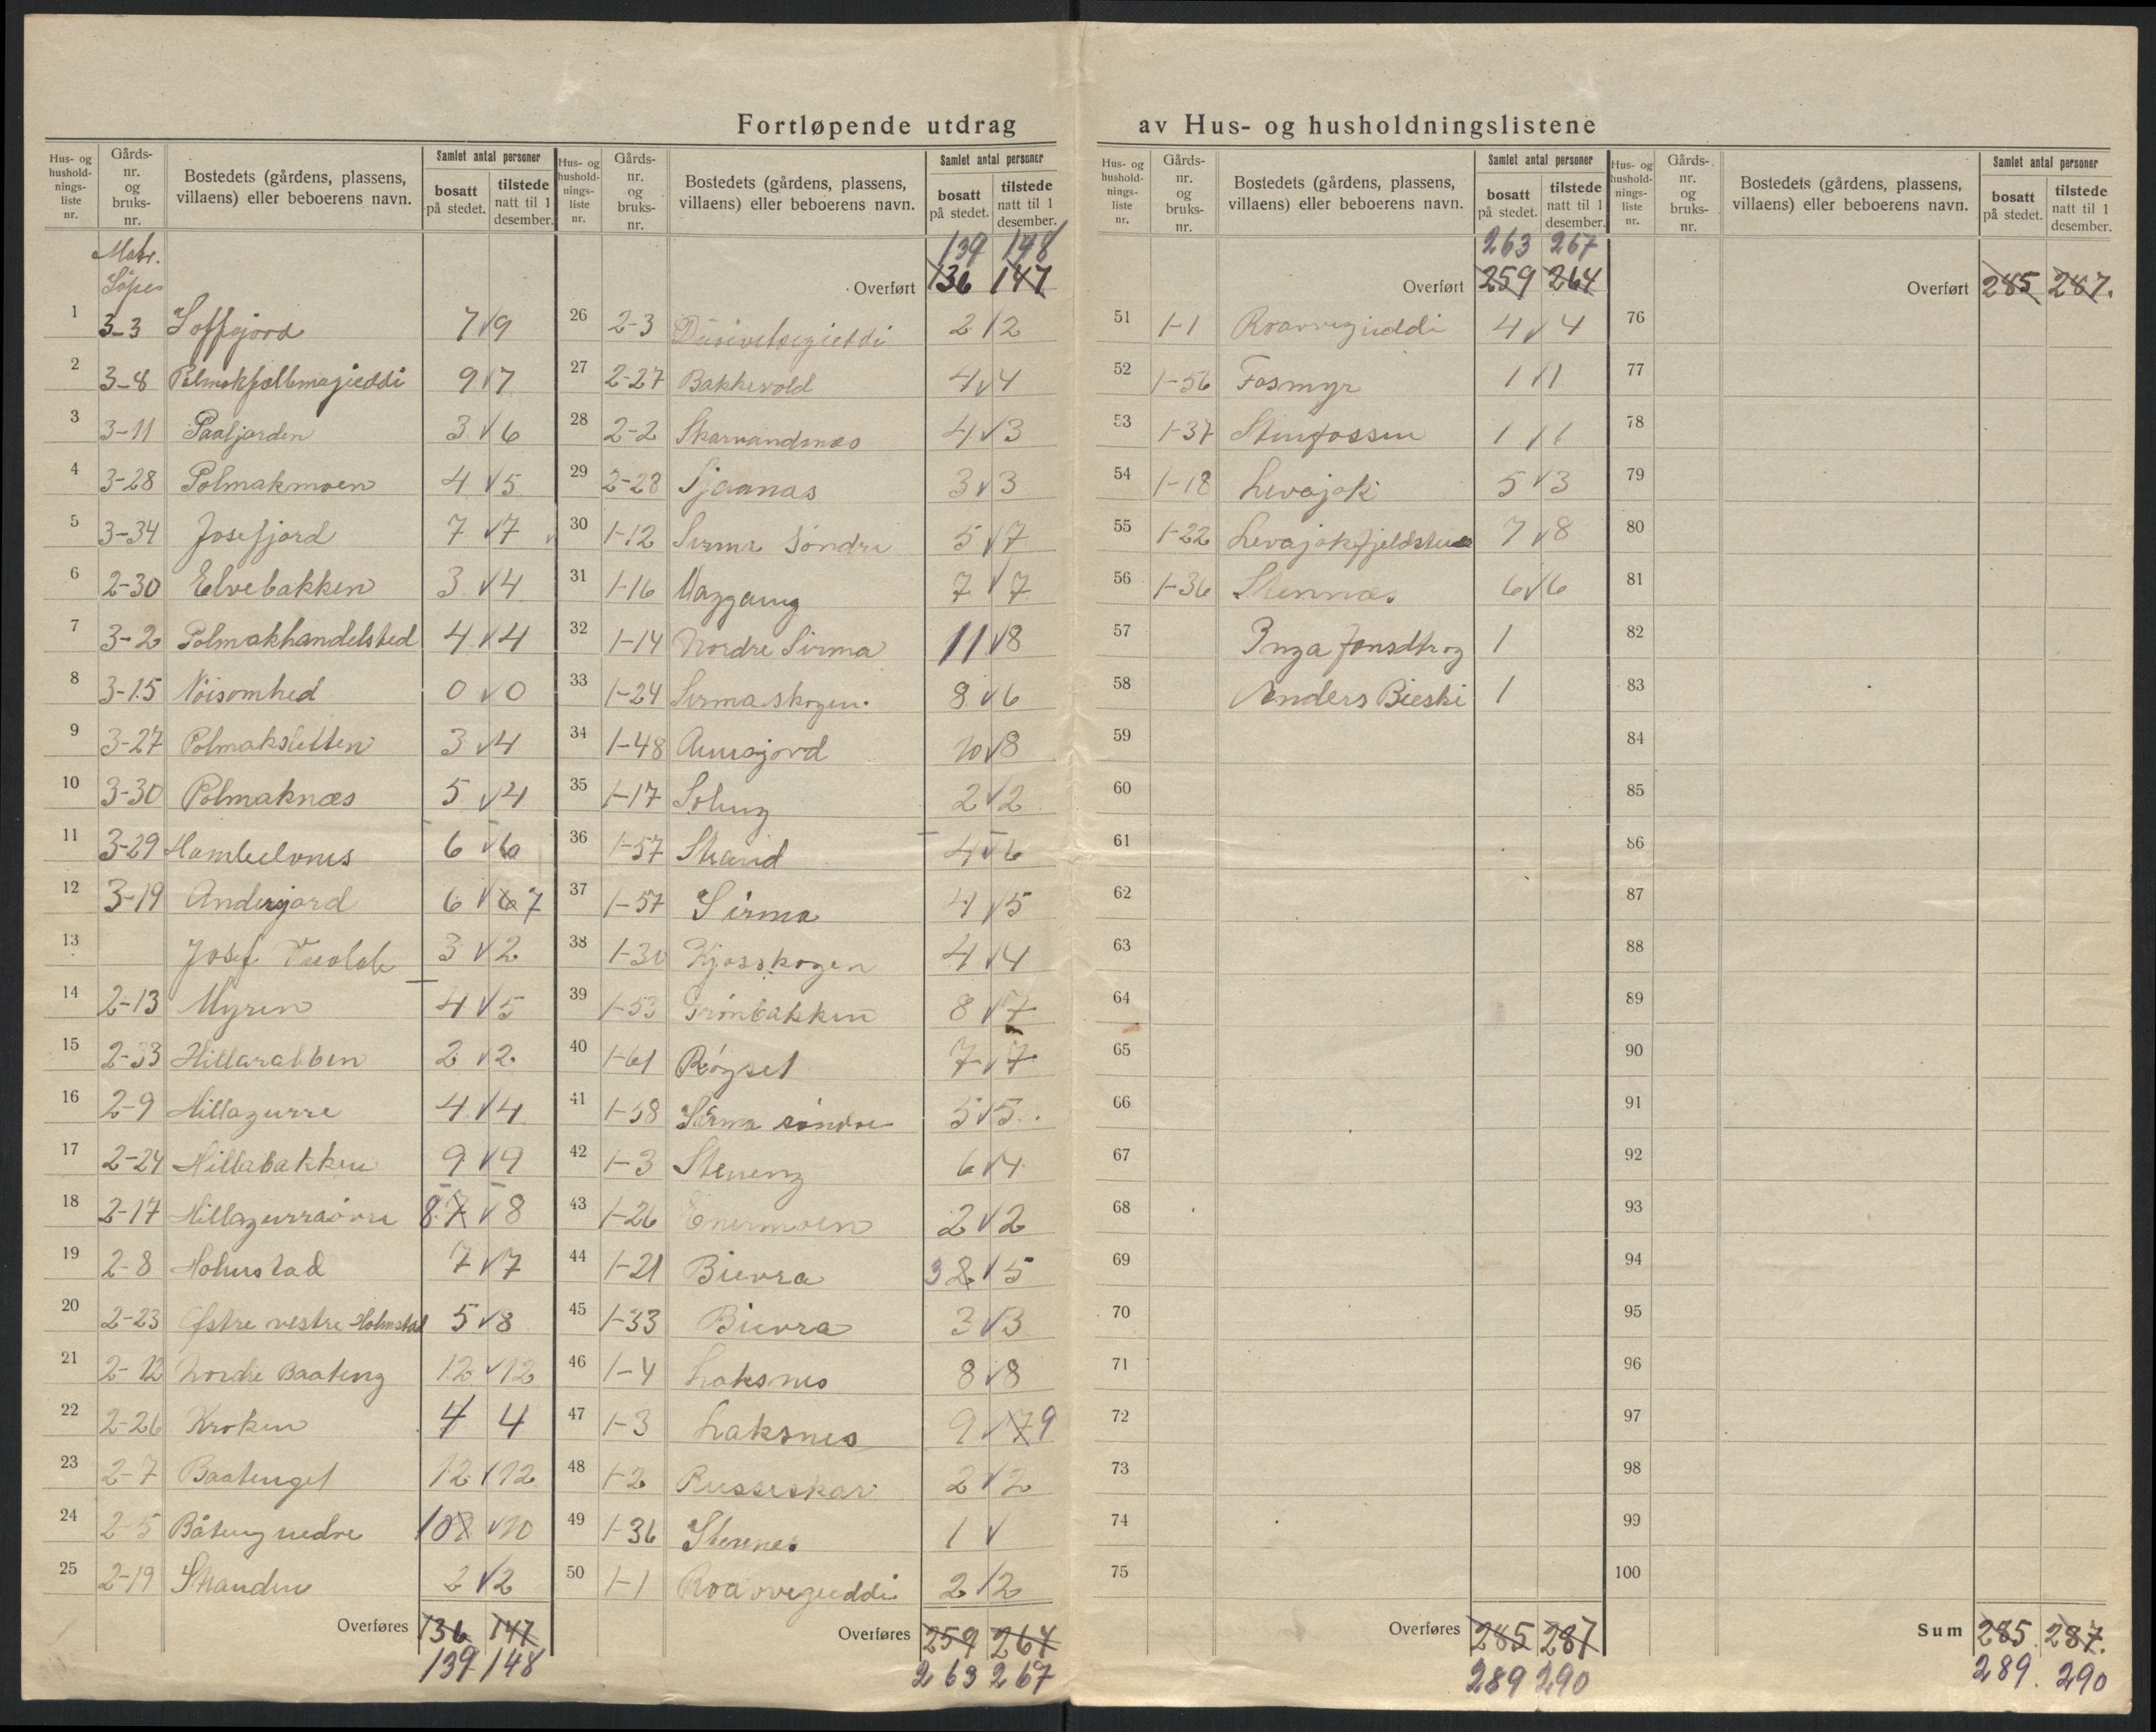 Fortløpende utdrag av Hus- og husholdningslistene
Hus- og husholdnings-liste nr. Gårds-nr. og bruks-nr. Bostedets (gårdens, plassens, villaens) eller beboerens navn. Samlet antal personer bosatt på stedet. tilstede natt til 1 desember.
Matr.
Löpe
1 3-3 Soffgjord 7 9
2 3-8 Polmakfjellemagieddi 9 7
3 3-11 Paafjorden 3 6
4 3-28 Polmakmoen 4 5
5 3-34 Josefjord 7 7
6 2-30 Elvebakken 3 4
7 3-2 Polmakhandelsted 4 4
8 3-15 Nöisomhed 0 0
9 3-27 Polmaksletten 3 4
10 3-30 Polmaknæs 5 4
11 3-29 6 6
12 3-19 Andersjord 6 6 7
13 Josef 3 2
14 2-13 Myren 4 5
15 2-33 Hillarabben 2 2
16 2-9 Hillagurra 4 4
17 2-24 Hillabakken 9 9
18 2-17 Hillagurraövre 8 7 8
19 2-8 Holmstad 7 7
20 2-23 Østre vestre Holmstad 5 8
21 2-12 Nordre Baateng 12 12
22 2-26 Kroken 4 4
23 2-7 Baatenget 12 12
24 2-5 Båteng nedre 10 8 10
25 2-19 Skanden 2 2
Overføres 136 147
139 148
Hus- og husholdnings-liste nr. Gårds-nr. og bruks-nr. Bostedets (gårdens, plassens, villaens) eller beboerens navn. Samlet antal personer bosatt på stedet. tilstede natt til 1 desember.
139 148
Overført 136 147
26 2-3 2 2
27 2-27 Bakkevold 4 4
28 2-2 Skarvandnæs 4 3
29 2-28 Sjaanas 3 3
30 1-12 Sirma Søndre 5 7
31 1-16 Vaggang 7 7
32 1-14 Nordre Sirma 11 8
33 1-24 Sirmaskogen 8 6
34 1-48 Annajord 10 8
35 1-17 Soleng 2 2
36 1-57 Strand 4 6
37 1-57 Sirma 4 5
38 1-30 Kjosskogen 4 4
39 1-53 Grönbakken 8 7
40 1-61 Røyset 7 7
41 1-58 Sirma søndre 5 5
42 1-3 Steneng 6 4
43 1-26 Enermoen 2 2
44 1-21 Bievra 3 2 5
45 1-33 Bievra 3 3
46 1-4 Laksnes 8 8
47 1-3 Laksnes 9 7 9
48 1-2 Russeskar 2 2
49 1-36 Stennes 1
50 1-1 Roavvegieddi 2 2
Overføres 259 264
263 267
Hus- og husholdnings-liste nr. Gårds-nr. og bruks-nr. Bostedets (gårdens, plassens, villaens) eller beboerens navn. Samlet antal personer bosatt på stedet. tilstede natt til 1 desember.
263 267
Overført 259 264
51 1-1 Roavvegieddi 4 4
52 1-56 Fosmyr 1 1
53 1-37 Stenfossen 1 1
54 1-18 Levajok 5 3
55 1-22 Levajokfjeldstue 7 8
56 1-36 Stennæs 6 6
57 Inga Jonsdtr og 1
58 Anders Bieski 1
59
60
61
62
63
64
65
66
67
68
69
70
71
72
73
74
75
Overføres 285 287
289 290
Hus- og husholdnings-liste nr. Gårds-nr. og bruks-nr. Bostedets (gårdens, plassens, villaens) eller beboerens navn. Samlet antal personer bosatt på stedet. tilstede natt til 1 desember.
Overført 285 287.
76
77
78
79
80
81
82
83
84
85
86
87
88
89
90
91
92
93
94
95
96
97
98
99
100
Sum 285. 287.
289. 290